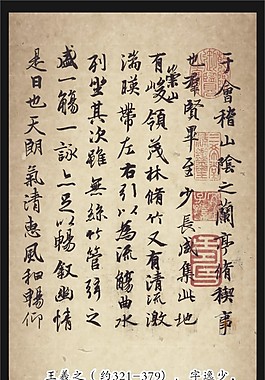 于會稽山陰之蘭亭脩稧事
也羣賢畢至少長咸集此地
有崇山峻領茂林脩竹又有清流激
湍暎帶左右引以為流觴曲水
列坐其次雖無絲竹管弦之
盛一觴一詠亦足以暢叙幽情
是日也天朗氣清惠風和暢仰
王羲之（约321-379），字逸少，